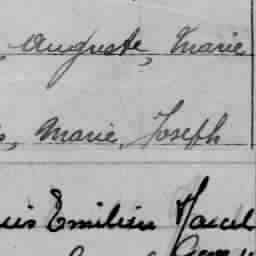 , Auguste, Marie
s, Marie, Joseph
uis Emilien Marcel